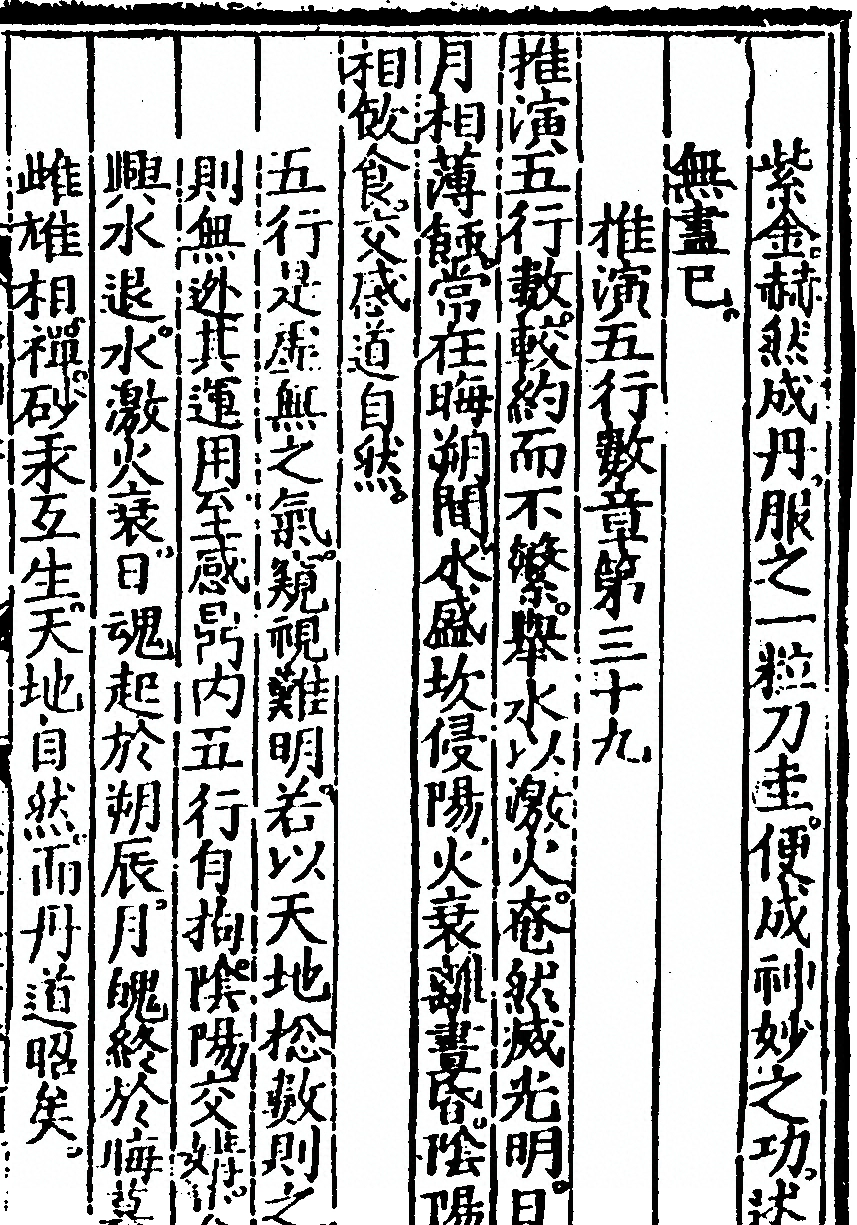 紫金。赫然成丹。服之一粒刀圭。便成神妙之功。
無盡已。
推演五行數章第三十九
推演五行數。較約而不繁。舉水以激火。奄然滅光明。日
月相薄蝕。常在晦朔間。水盛坎侵陽。火衰離晝昏。陰陽
相飲食。交感道自然。
五行是虛無之氣。窺視難明。若以天地総數則之
則無逃其運用。至感鼎內五行自拘。陰陽交媾。
興水退。水激火衰。日魂起於朔辰。月魄終於晦
雌雄相禪。砂汞互生。天地自然。而丹道昭矣。